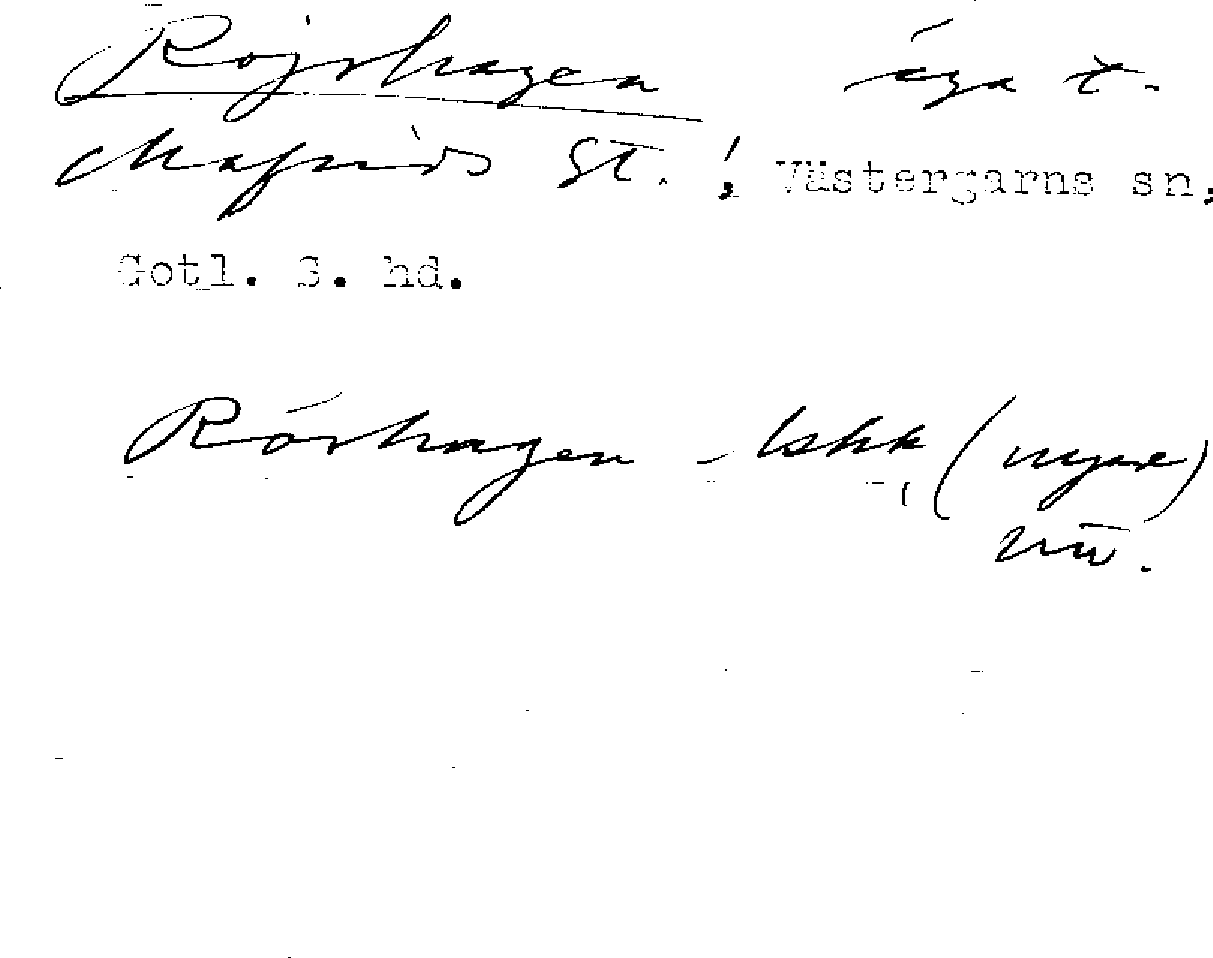 Rojrhagen äga t.
Mafrids St.; Västergarns sn,
Gotl. S. hd.
Rörhagen - lskk, (nyare)